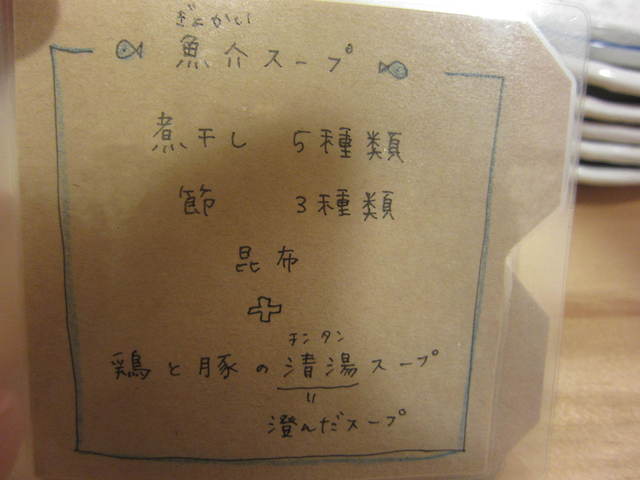 ぎょかい
魚介スープ
煮干し 5種類
節 3種類
昆布
+
チンタン
鶏と豚の清湯スープ
=
澄んだスープ